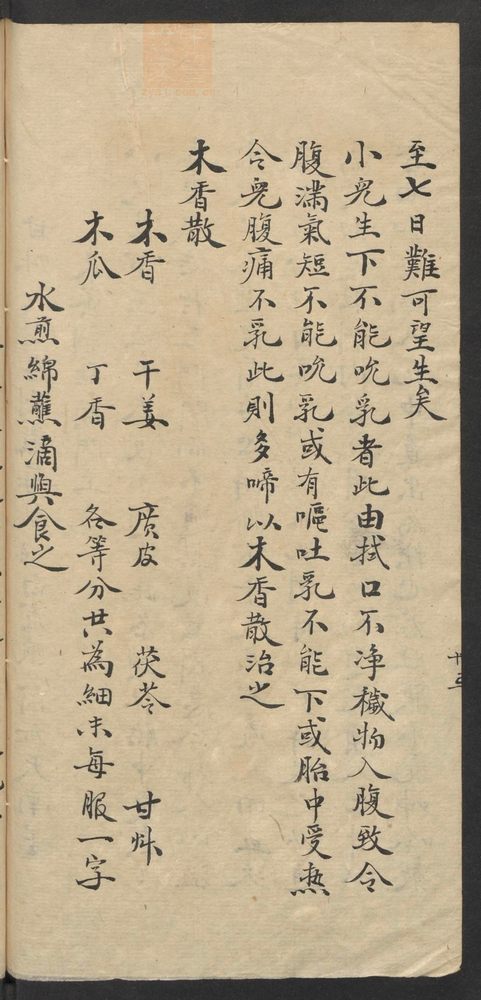 至七日難可望生矣
小兒生下不能吮乳者此由拭口不淨穢物入腹致令
腹滿氣短不能吮乳或有嘔吐乳不能下或胎中受热
令兒腹痛不乳此則多啼以木香散治之
木香散
木香 干姜 廣皮 茯苓 甘艸
木瓜 丁香 各等分共為細末每服一字
水煎綿蘸滴與食之
十五